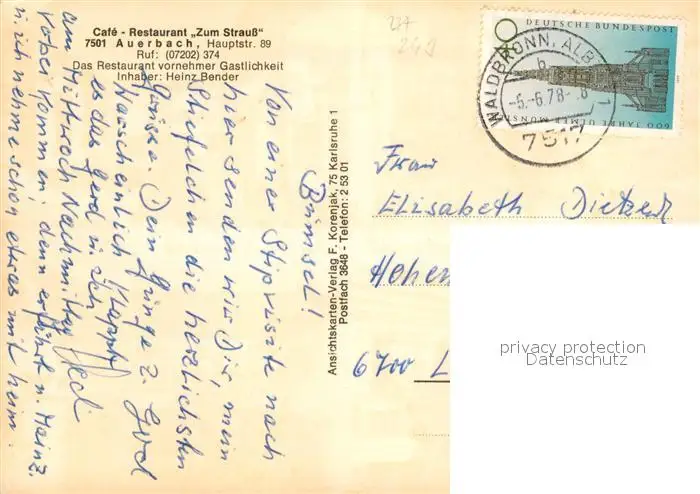 Café - Restaurant „Zum Strauß"
7501 Auerbach, Hauptstr. 89
Ruf: (07202) 374
Das Restaurant vornehmer Gastlichkeit
Inhaber: Heinz Bender
237
249
40 DEUTSCHE BUNDESPOST
600 JAHRE ULMER MÜNSTER
WALDBRONN, ALB
b
-5.-6.78-.8
1
7517
Ansichtskarten-Verlag F. Korenjak, 75 Karlsruhe 1
Postfach 3648 - Telefon: 2 53 01
Bümsel!
Von einer Stipvisite nach
hier senden wir Dir, mein
Stiefelchen die herzlichsten
Grüsse. Dein Junge z.
Narscheinlich klappt
es das Gerd u. ich
am Mittwoch Nachmittag
vorbei kommen, denn er fährt n. Mainz
u. ich nehme schon etwas mit heim.
Gerd
Frau
Elisabeth Dietzel
Hohen
6700 L
privacy protection
Datenschutz